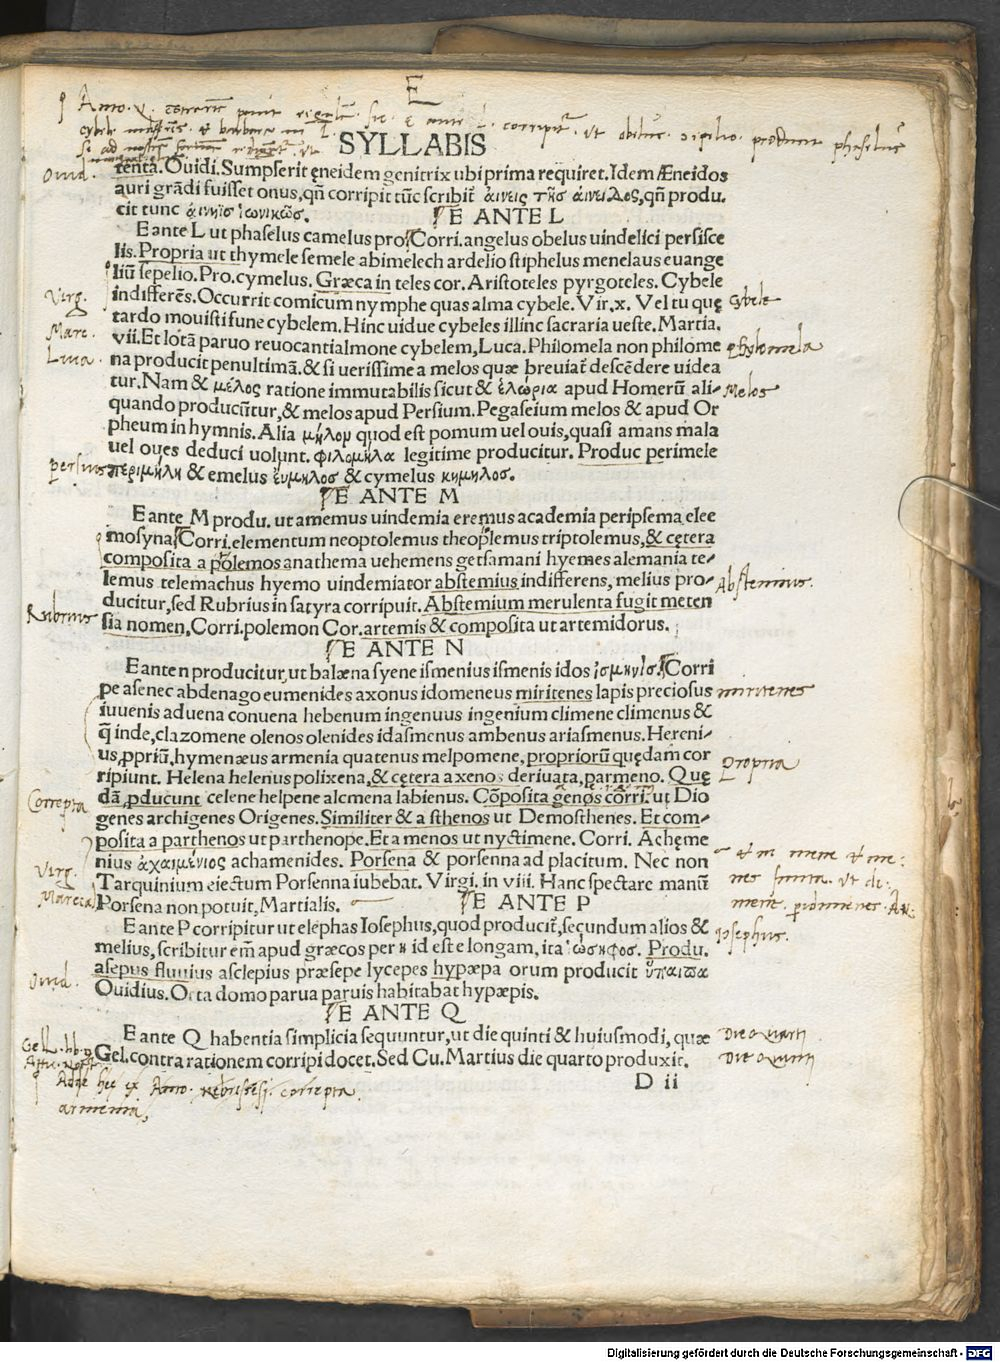 E
SYLLABIS
tenta. Ouidi. Sumpserit ęneidem genitrix ubi prima requiret. Idem Æneidos
auri grādi fuisset onus, qñ corripit tūc scribit̃ ἀινεις της ἀινειδος, qñ produ.
cit tunc ἀινηϊς ἰωνικῶς.
E ANTE L
Ouid.
E ante L ut phaselus camelus pro. Corri. angelus obelus uindelici persisce
lis. Propria ut thymele semele abimelech ardelio stiphelus menelaus euange
liū sepelio. Pro. cymelus. Græca in teles cor. Aristoteles pyrgoteles. Cybele
indifferēs. Occurrit comicum nymphe quas alma cybele. Vir. x. Vel tu quę
tardo mouisti fune cybelem. Hinc uidue cybeles illinc sacraria ueste. Martia.
vii. Et lotā paruo reuocant almone cybelem, Luca. Philomela non philome
na producit penultimā. & si uerissime a melos quæ breuiat̃ descēdere uidea
tur. Nam & μέλος ratione immutabilis sicut & ἑλώρια apud Homerū ali-
quando producūtur, & melos apud Persium. Pegaseium melos & apud Or
pheum in hymnis. Alia μήλον quod est pomum uel ouis, quasi amans mala
uel oues deduci uolunt. φιλομήλα legitime producitur. Produc perimele
περιμήλη & emelus ἐυμηλος & cymelus κημηλος.
Virg.
Marc.
Luca
persius
Cybele
philomela
Melos
E ANTE M
E ante M produ. ut amemus uindemia eremus academia peripsema elee
mosyna. Corri. elementum neoptolemus theoplemus triptolemus, & cętera
composita a polemos anathema uehemens getsamani hyemes alemania te-
lemus telemachus hyemo uindemiator abstemius indifferens, melius pro-
ducitur, sed Rubrius in satyra corripuit. Abstemium merulenta fugit meten
sia nomen. Corri. polemon Cor. artemis & composita ut artemidorus.
Rubrius
Abstemius.
E ANTE N
E ante n producitur, ut balæna syene ismenius ismenis idos ἰσμηνὶς. Corri
pe asenec abdenago eumenides axonus idomeneus miritenes lapis preciosus
iuuenis aduena conuena hebenum ingenuus ingenium climene climenus &
q̃ inde, clazomene olenos olenides idasmenus ambenus ariasmenus. Hereni-
us, ꝓpriū, hymenæus armenia quatenus melpomene, propriorū quędam cor
ripiunt. Helena helenus polixena, & cętera a xenos deriuata, parmeno. Quę
dā ꝓducunt celene helpene alcmena labienus. Cōposita genos corri. ut Dio
genes archigenes Origenes. Similiter & a sthenos ut Demosthenes. Et com-
posita a parthenos ut parthenope. Et a menos ut nyctimene. Corri. Achęme
nius ἀχαιμένιος achamenides. Porsena & porsenna ad placitum. Nec non
Tarquinium eiectum Porsenna iubebat. Virgi. in viii. Hanc spectare manū
Porsena non potuit, Martialis.
miritenes
Propria
Correpta
Virg.
Marcia
E ANTE P
E ante P corripitur ut elephas Iosephus, quod producit̃, secundum alios &
melius, scribitur em̃ apud græcos per η id est e longam, ita ἰώσηφος. Produ.
asepus fluuius asclepius præsepe lycepes hypæpa orum producit ὕπαιπα
Ouidius. Orta domo parua paruis habitabat hypæpis.
Iosephus.
Ouid.
E ANTE Q
E ante Q habentia simplicia sequuntur, ut die quinti & huiusmodi, quæ
Gel. contra rationem corripi docet. Sed Cu. Martius die quarto produxit.
Die Quarti
Die Quinti
D ii
armenia,
Digitalisierung gefördert durch die Deutsche Forschungsgemeinschaft - DFG